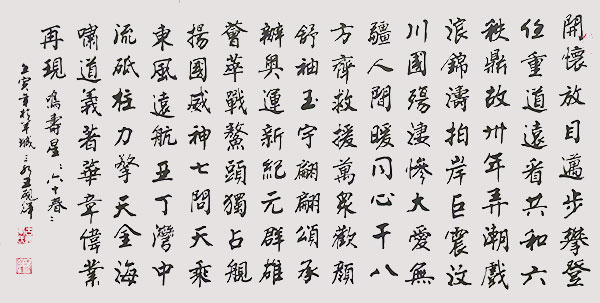 開懷放目邁步攀登
任重道遠看共和六
秩鼎故卅年弄潮戲
浪錦濤拍岸巨震汶
川國殤淒慘大愛無
疆人間暖同心干八
方齊救援萬衆歡顏
舒袖玉宇翩翩頌承
辦奧運新紀元群雄
薈萃戰鰲頭獨占觀
揚國威神七問天乘
東風遠航亞丁灣中
流砥柱力擎天金海
嘯道義者華章偉業
再現
壽星六十春